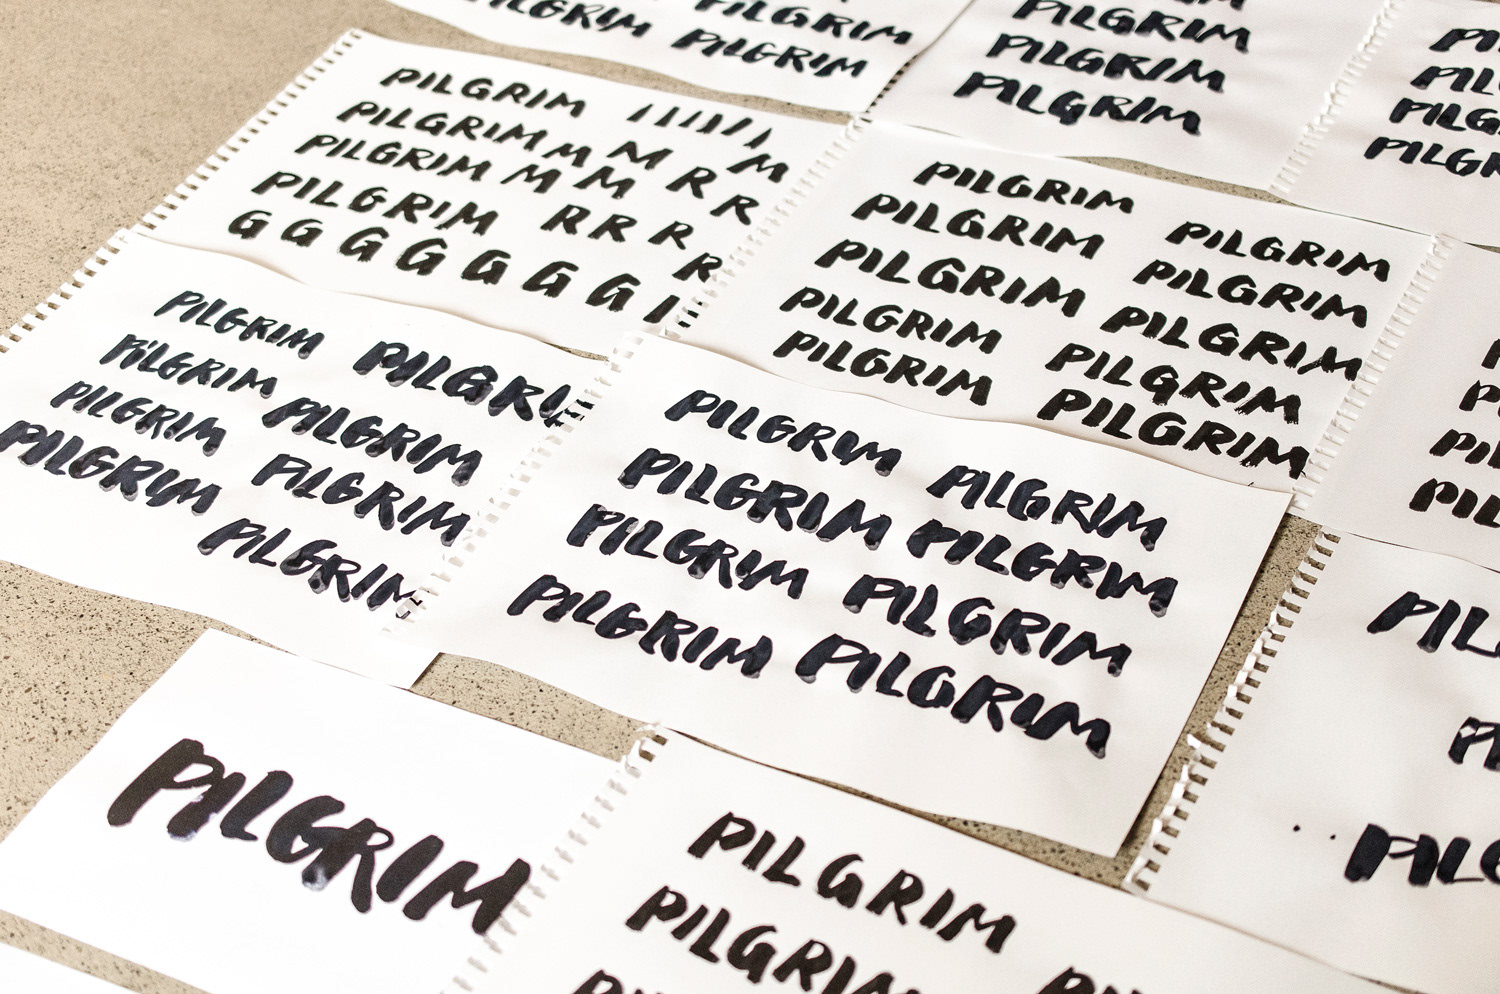 PILGRIM PILGRIM
PILGRIM
PILGRIM
PILGRIM
PILGRIM
PILGRIM
PILGRIM I I I I I I
PILGRIM M M M
PILGRIM M M R R
PILGRIM R R R R
G G G G G G G
PILGRIM
PILGRIM PILGRIM
PILGRIM PILGRIM
PILGRIM PILGRIM
PILGRIM PILGRIM
PILGRIM
PILGRIM
PILGRIM PILGRIM
PILGRIM PILGRIM
PILGRIM PILGRIM
PILGRIM
PILGRIM PILGRIM
PILGRIM PILGRIM
PILGRIM PILGRIM
PILGRIM PILGRIM
PILGRIM
PILGRIM
PILGRIM